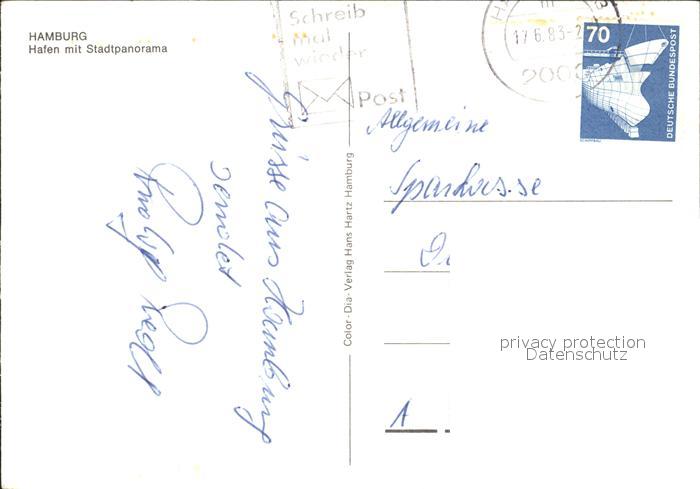 HAMBURG
Hafen mit Stadtpanorama
Schreib
mal
wieder
Post
17.6.83-2
2000
70
DEUTSCHE BUNDESPOST
Grüsse aus Hamburg
sendet
Color-Dia-Verlag Hans Hartz Hamburg
Allgemeine
Sparkasse
A
privacy protection
Datenschutz